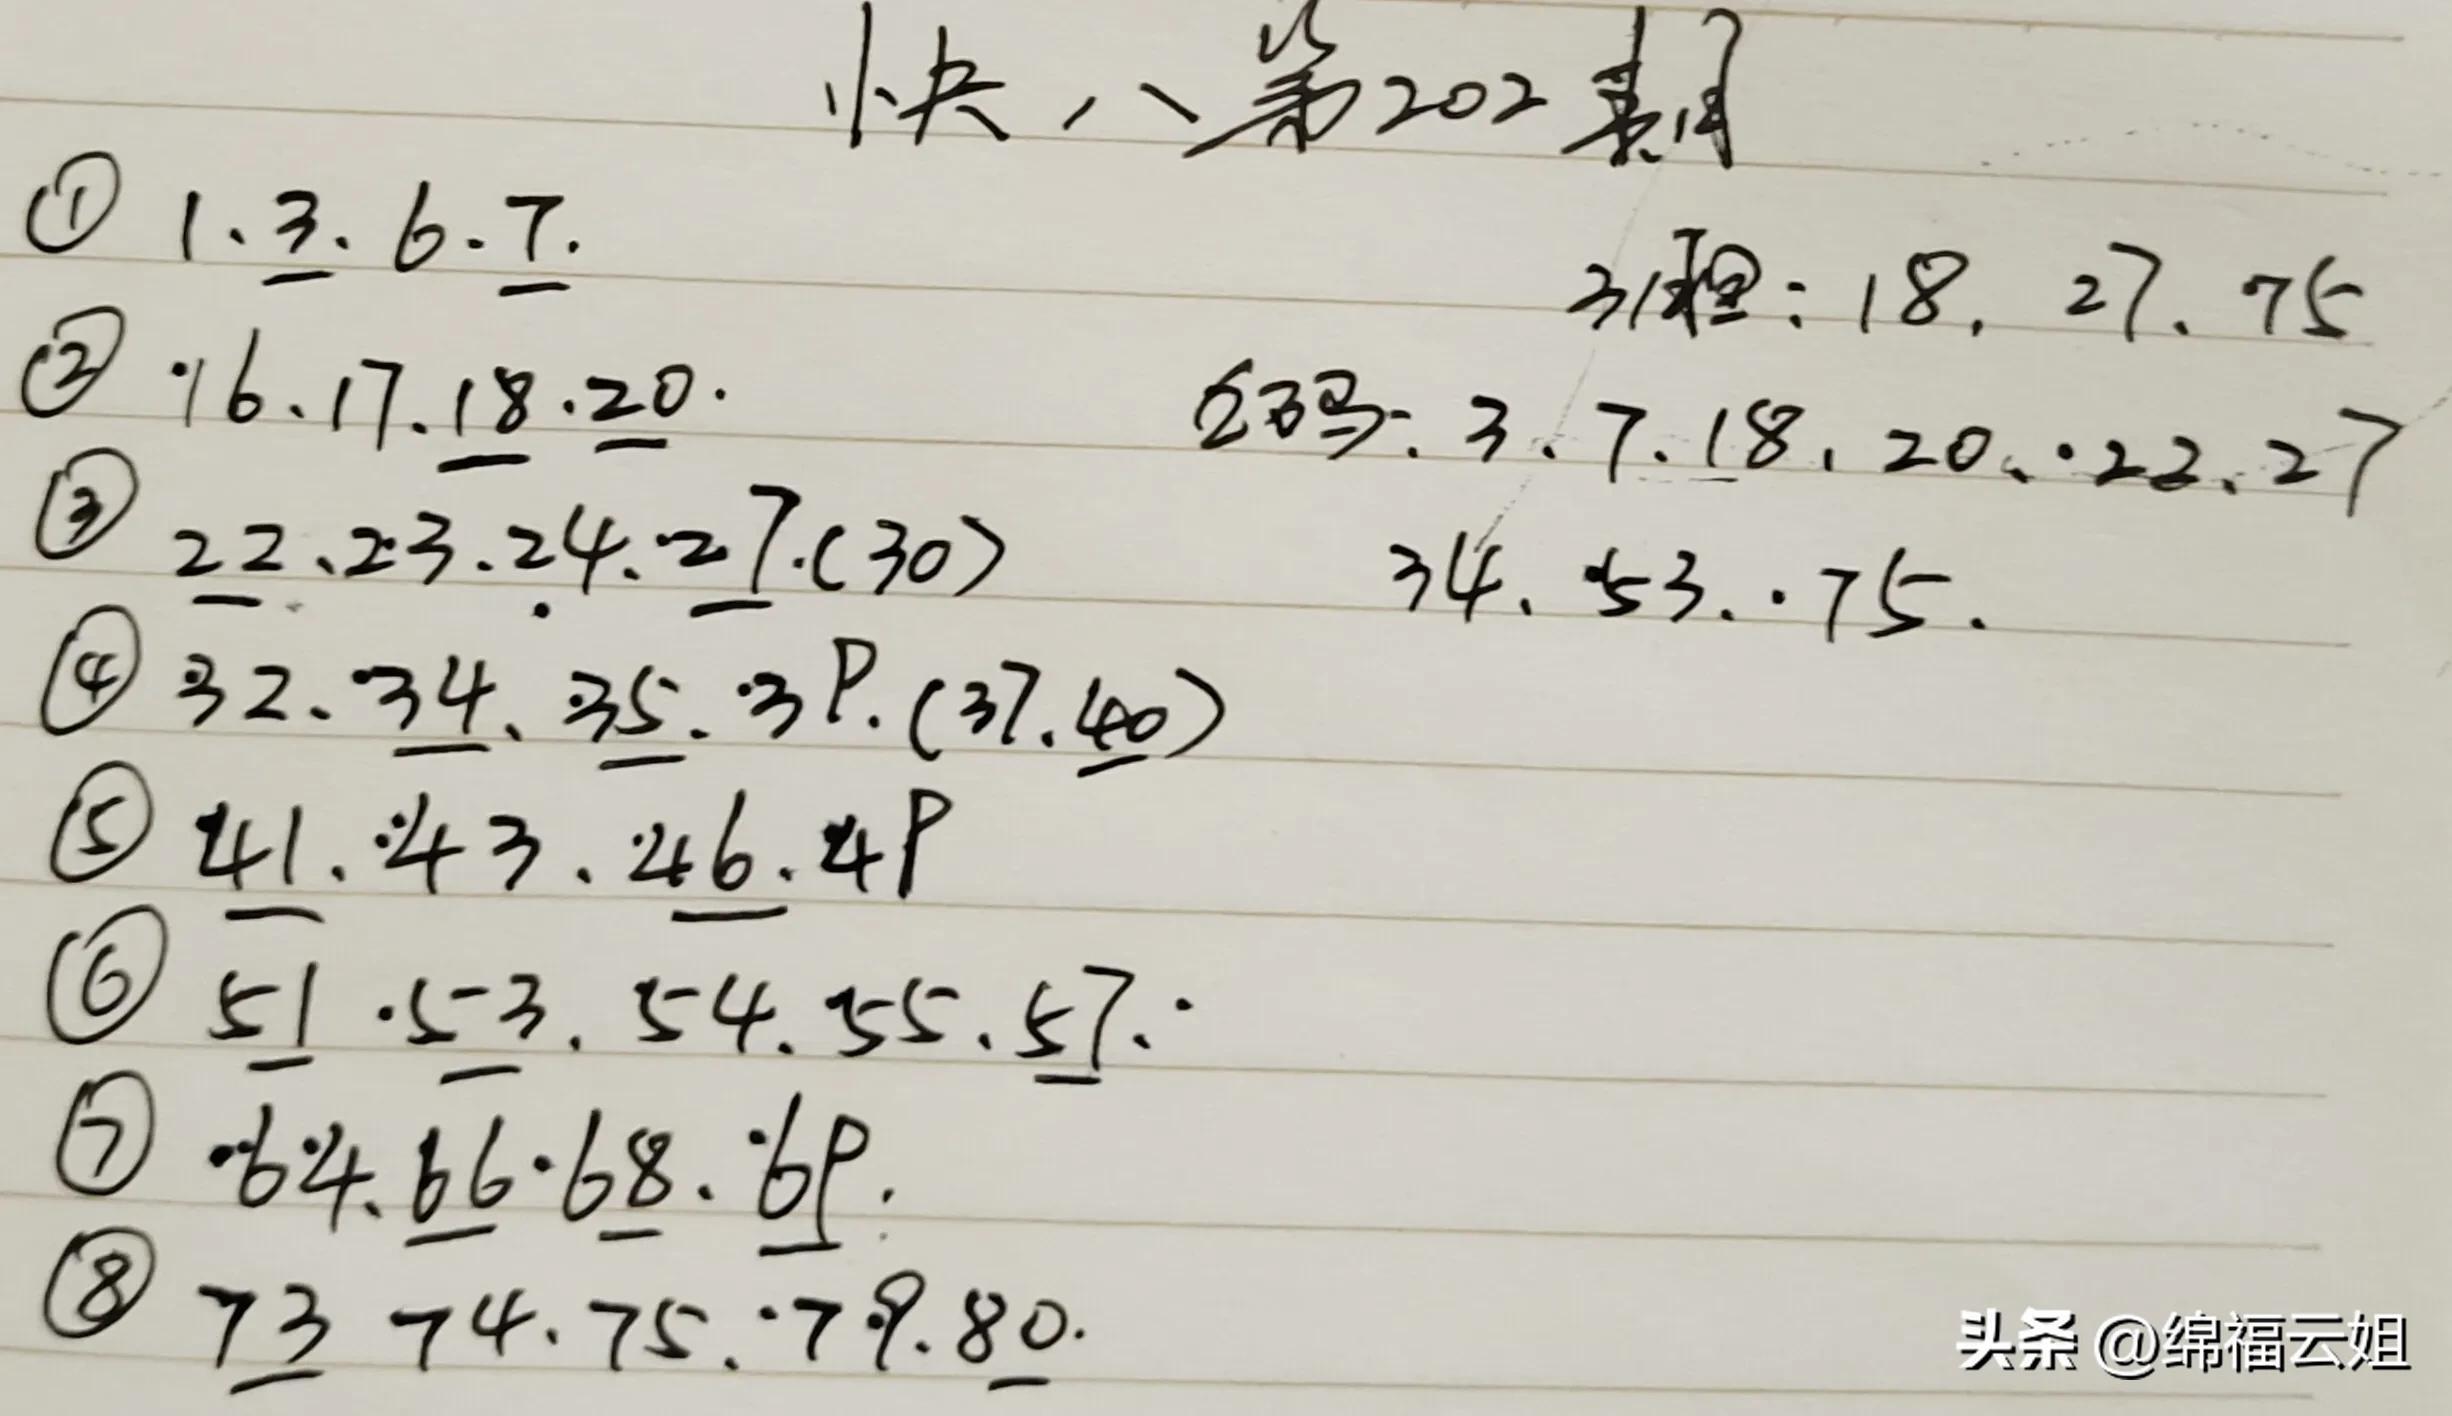 快八第202期
① 1.3.6.7.
② 16.17.18.20.
③ 22.23.24.27.(30)
④ 32.34.35.39.(37.40)
⑤ 41.43.46.49
⑥ 51.53.54.55.57.
⑦ 64.66.68.69.
⑧ 73 74.75.79.80.
: 18. 27. 75
码: 3.7.18.20.22.27
34.53.75.
头条 @绵福云姐